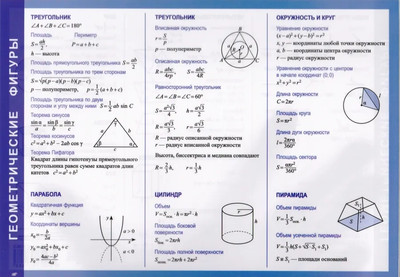 ГЕОМЕТРИЧЕСКИЕ ФИГУРЫ
ТРЕУГОЛЬНИК
∠A + ∠B + ∠C = 180°
Площадь Периметр
S = ah/2 P = a + b + c
h — высота
Площадь прямоугольного треугольника S = ab/2
Площадь треугольника по трем сторонам
S = √p(p − a)(p − b)(p − c)
p — полупериметр, p = 1/2 (a + b + c)
Площадь треугольника по двум
сторонам и углу между ними S = 1/2 ab sin C
Теорема синусов
sin α/a = sin β/b = sin γ/c
Теорема косинусов
c² = a² + b² − 2ab cos γ
Теорема Пифагора
Квадрат длины гипотенузы прямоугольного
треугольника равен сумме квадратов длин
катетов c² = a² + b²
ТРЕУГОЛЬНИК
Вписанная окружность
r = S/p
p — полупериметр
Описанная окружность
R = abc/4rp S = abc/4R
Равносторонний треугольник
∠A = ∠B = ∠C = 60°
S = a²√3/4 h = a√3/2
R = a√3/3 r = a√3/6
R — радиус описанной окружности
r — радиус вписанной окружности
Высота, биссектриса и медиана совпадают
R = 2h/3 r = h/3
ОКРУЖНОСТЬ И КРУГ
Уравнение окружности
(x − a)² + (y − b)² = r²
x, y — координаты любой точки окружности
a, b — координаты центра окружности
r — радиус окружности
Уравнение окружности с центром
в начале координат (0;0)
x² + y² = r²
Длина окружности
C = 2πr
Площадь круга
S = πr²
Длина дуги окружности
l = 2πrα/360°
Площадь сектора
S = πr²α/360°
ПАРАБОЛА
Квадратичная функция
y = ax² + bx + c
Координаты вершины
x₀ = − b/2a
y₀ = 4ac − b²/4a
a > 0
a < 0
ЦИЛИНДР
Объем
V = Sосн · h = πr² · h
Площадь боковой
поверхности
Sбок = 2πrh
Площадь полной поверхности
Sполн = 2πrh + 2πr²
ПИРАМИДА
Объем пирамиды
V = 1/3 Sосн · h
Объем усеченной пирамиды
V = 1/3 h(S + √S · S₁ + S₁)
S и S₁ — площади оснований